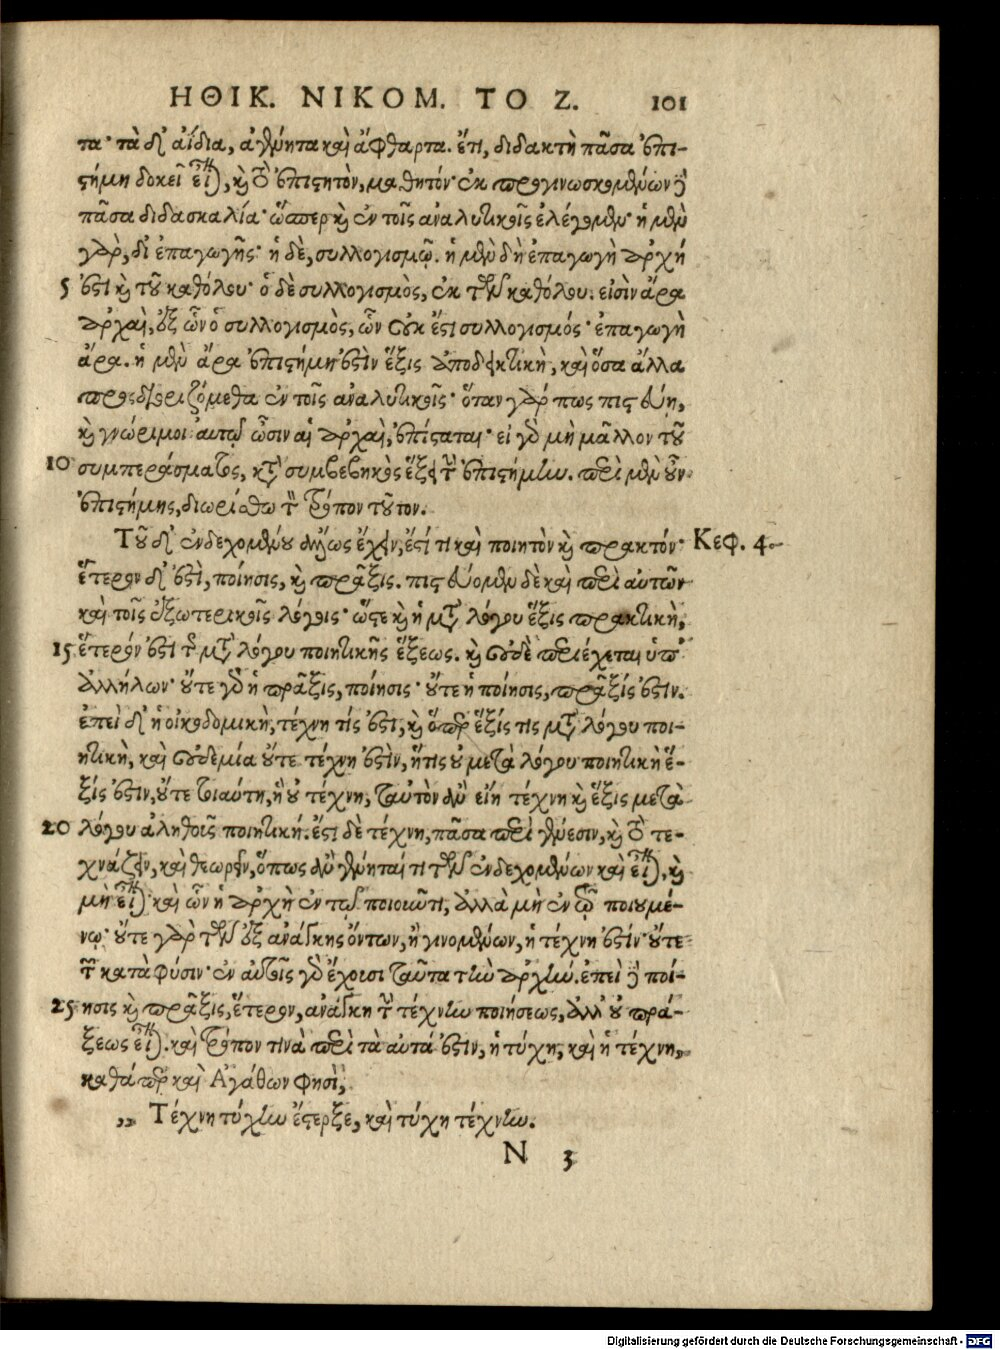 ΗΘΙΚ. ΝΙΚΟΜ. ΤΟ Ζ. 101
τα· τὰ δ' ἀΐδια, ἀγένητα καὶ ἄφθαρτα. ἔτι, διδακτὴ πᾶσα ἐπι-
στήμη δοκεῖ εἶναι, καὶ τὸ ἐπιστητὸν, μαθητόν· ἐκ προγινωσκομένων δὲ
πᾶσα διδασκαλία· ὥσπερ καὶ ἐν τοῖς ἀναλυτικοῖς ἐλέγομεν· ἡ μὲν
γὰρ, δι' ἐπαγωγῆς· ἡ δὲ, συλλογισμῷ. ἡ μὲν δὴ ἐπαγωγὴ ἀρχή
5 ἐστι καὶ τοῦ καθόλου· ὁ δὲ συλλογισμὸς, ἐκ τῶν καθόλου. εἰσὶν ἄρα
ἀρχαὶ, ἐξ ὧν ὁ συλλογισμὸς, ὧν οὐκ ἔστι συλλογισμός· ἐπαγωγὴ
ἄρα. ἡ μὲν ἄρα ἐπιστήμη ἐστὶν ἕξις ἀποδεικτικὴ, καὶ ὅσα ἄλλα
προσδιοριζόμεθα ἐν τοῖς ἀναλυτικοῖς· ὅταν γάρ πως πιστεύῃ,
καὶ γνώριμοι αὐτῷ ὦσιν αἱ ἀρχαὶ, ἐπίσταται· εἰ γὰρ μὴ μᾶλλον τοῦ
10 συμπεράσματος, κατὰ συμβεβηκὸς ἕξει τὴν ἐπιστήμην. περὶ μὲν οὖν
ἐπιστήμης, διωρίσθω τὸν τρόπον τοῦτον.
Τοῦ δ' ἐνδεχομένου ἄλλως ἔχειν, ἔστί τι καὶ ποιητὸν καὶ πρακτόν· Κεφ. 4.
ἕτερον δ' ἐστὶ, ποίησις, καὶ πρᾶξις. πιστεύομεν δὲ καὶ περὶ αὐτῶν
καὶ τοῖς ἐξωτερικοῖς λόγοις· ὥστε καὶ ἡ μετὰ λόγου ἕξις πρακτικὴ,
15 ἕτερόν ἐστι τῆς μετὰ λόγου ποιητικῆς ἕξεως. καὶ οὐδὲ περιέχεται ὑπ'
ἀλλήλων· οὔτε γὰρ ἡ πρᾶξις, ποίησις· οὔτε ἡ ποίησις, πρᾶξίς ἐστιν.
ἐπεὶ δ' ἡ οἰκοδομικὴ, τέχνη τίς ἐστι, καὶ ὅπερ ἕξίς τις μετὰ λόγου ποι-
ητικὴ, καὶ οὐδεμία οὔτε τέχνη ἐστὶν, ἥτις οὐ μετὰ λόγου ποιητικὴ ἕ-
ξίς ἐστιν, οὔτε τοιαύτη, ἣ οὐ τέχνη, ταὐτὸν ἂν εἴη τέχνη καὶ ἕξις μετὰ
20 λόγου ἀληθοῦς ποιητική. ἔστι δὲ τέχνη, πᾶσα περὶ γένεσιν, καὶ τὸ τε-
χνάζειν, καὶ θεωρεῖν, ὅπως ἂν γένηταί τι τῶν ἐνδεχομένων καὶ εἶναι, καὶ
μὴ εἶναι· καὶ ὧν ἡ ἀρχὴ ἐν τῷ ποιοιῶτι, ἀλλὰ μὴ ἐν τῷ ποιουμέ-
νῳ· οὔτε γὰρ τῶν ἐξ ἀνάγκης ὄντων, ἢ γινομένων, ἡ τέχνη ἐστίν· οὔτε
τῶν κατὰ φύσιν· ἐν αὑτοῖς γὰρ ἔχουσι ταῦτα τὴν ἀρχήν. ἐπεὶ δὲ ποί-
25 ησις καὶ πρᾶξις, ἕτερον, ἀνάγκη τὴν τέχνην ποιήσεως, ἀλλ' οὐ πρά-
ξεως εἶναι. καὶ τρόπον τινὰ περὶ τὰ αὐτά ἐστιν, ἡ τύχη, καὶ ἡ τέχνη,
καθάπερ καὶ Ἀγάθων φησὶ,
„ Τέχνη τύχην ἔστερξε, καὶ τύχη τέχνην.
N 3
Digitalisierung gefördert durch die Deutsche Forschungsgemeinschaft - DFG